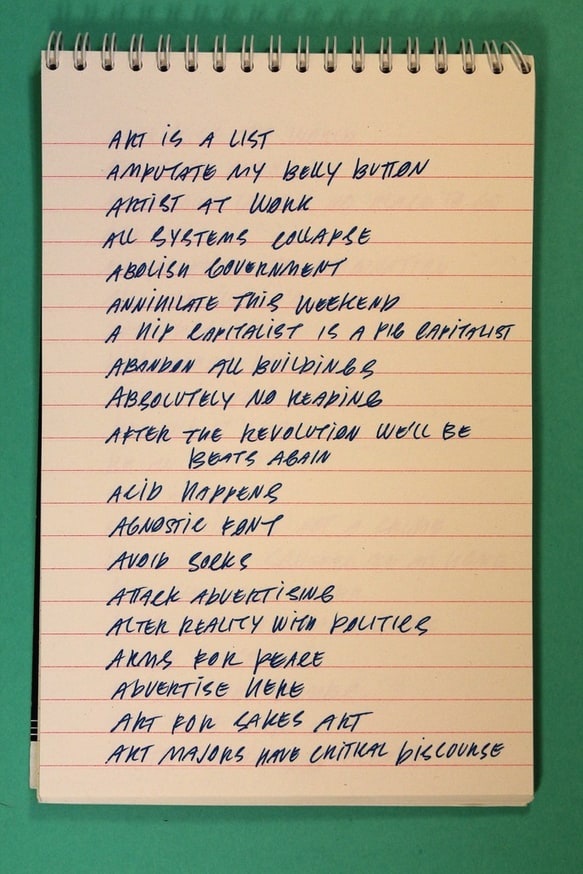 ART IS A LIST
AMPUTATE MY BELLY BUTTON
ARTIST AT WORK
ALL SYSTEMS COLLAPSE
ABOLISH GOVERNMENT
ANNIHILATE THIS WEEKEND
A HIP CAPITALIST IS A PIG CAPITALIST
ABANDON ALL BUILDINGS
ABSOLUTELY NO READING
AFTER THE REVOLUTION WE'LL BE
BEATS AGAIN
ACID HAPPENS
AGNOSTIC FONT
AVOID SOCKS
ATTACK ADVERTISING
ALTER REALITY WITH POLITICS
ARMS FOR PEACE
ADVERTISE HERE
ART FOR SAKES ART
ART MAJORS HAVE CRITICAL DISCOURSE